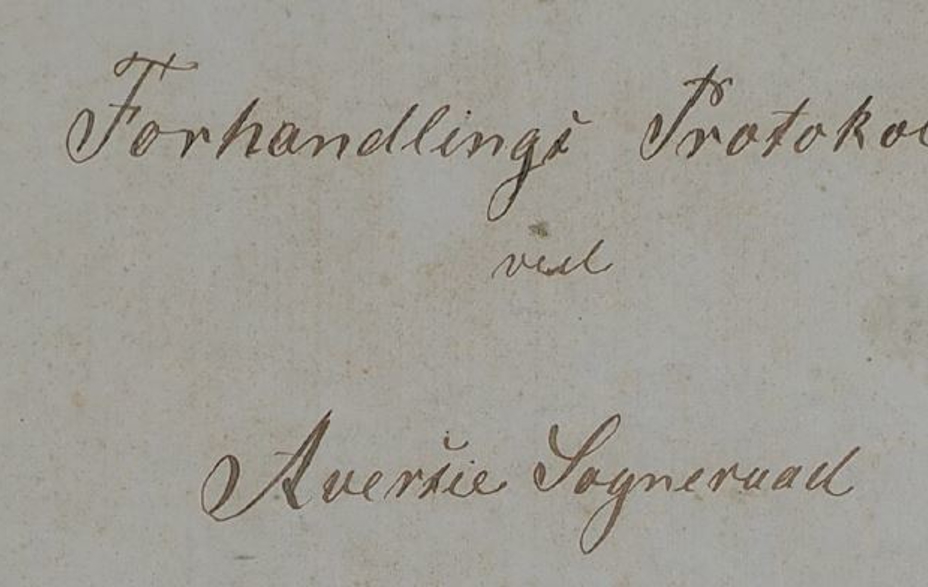 Forhandlings Protokol
ved
Aversie Sogneraad